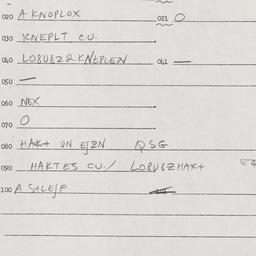 020 A KNOPLOX 021 O
030 KNEPLT CU.
040 LOBUSZ2 KNEPLEN 041 —
050 —
060 NEX
070 O
080 HAKT UN EJZN QSG
090 HAKTES CU./ LOBUSZHAKT
100 A SHLEJF